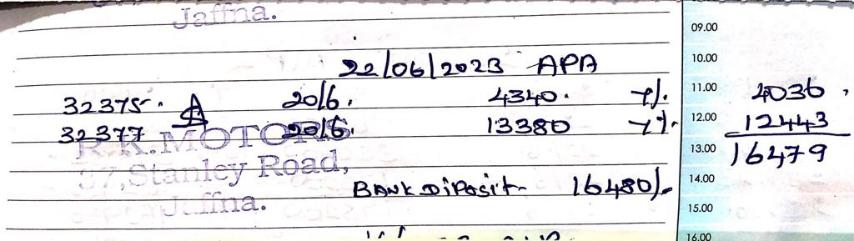 Jaffna.
09.00
22/06/2023 APA
10.00
32375. 2016. 4340. 7%.
11.00
4036
32377 2016. 13380 7%.
12.00
12443
R.K.MOTORS
13.00
16479
37, Stanley Road,
14.00
BANK Diposit 16480/-
Jaffna.
15.00
16.00